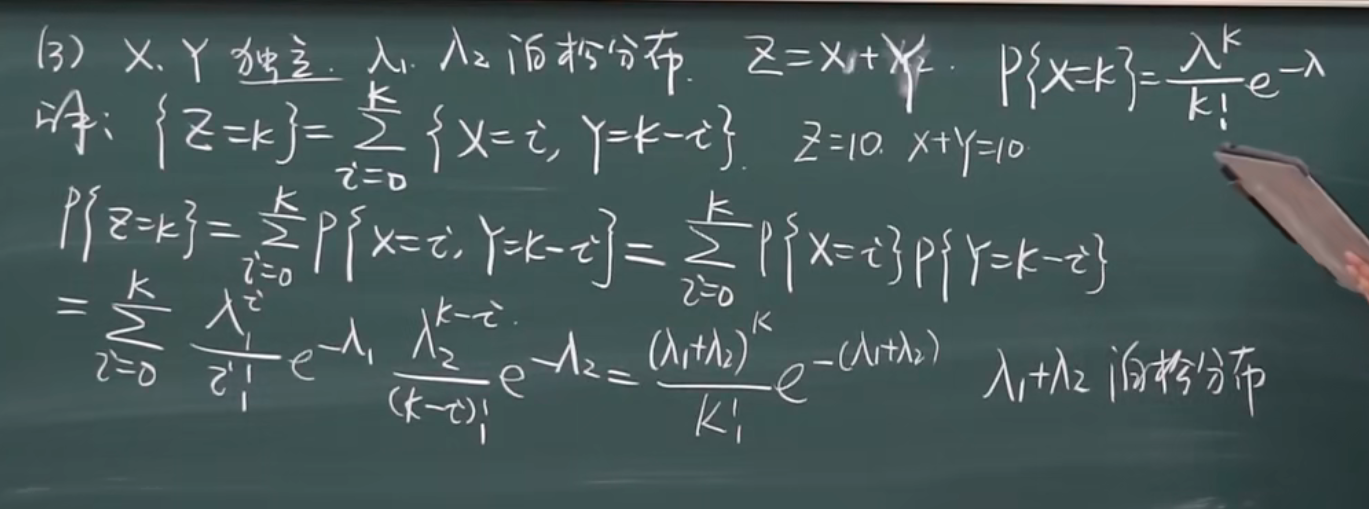 (3) X、Y 独立. λ₁. λ₂ 泊松分布. Z=X+Y. P{X=k}=\frac{λ^k}{k!}e^{-λ}
证: {Z=k}=\sum_{i=0}^{k}{X=i, Y=k-i}. Z=10. X+Y=10.
P{Z=k}=\sum_{i=0}^{k}P{X=i, Y=k-i}=\sum_{i=0}^{k}P{X=i}P{Y=k-i}
=\sum_{i=0}^{k}\frac{λ_1^i}{i!}e^{-λ_1}\frac{λ_2^{k-i}}{(k-i)!}e^{-λ_2}=\frac{(λ_1+λ_2)^k}{k!}e^{-(λ_1+λ_2)} λ₁+λ₂ 泊松分布